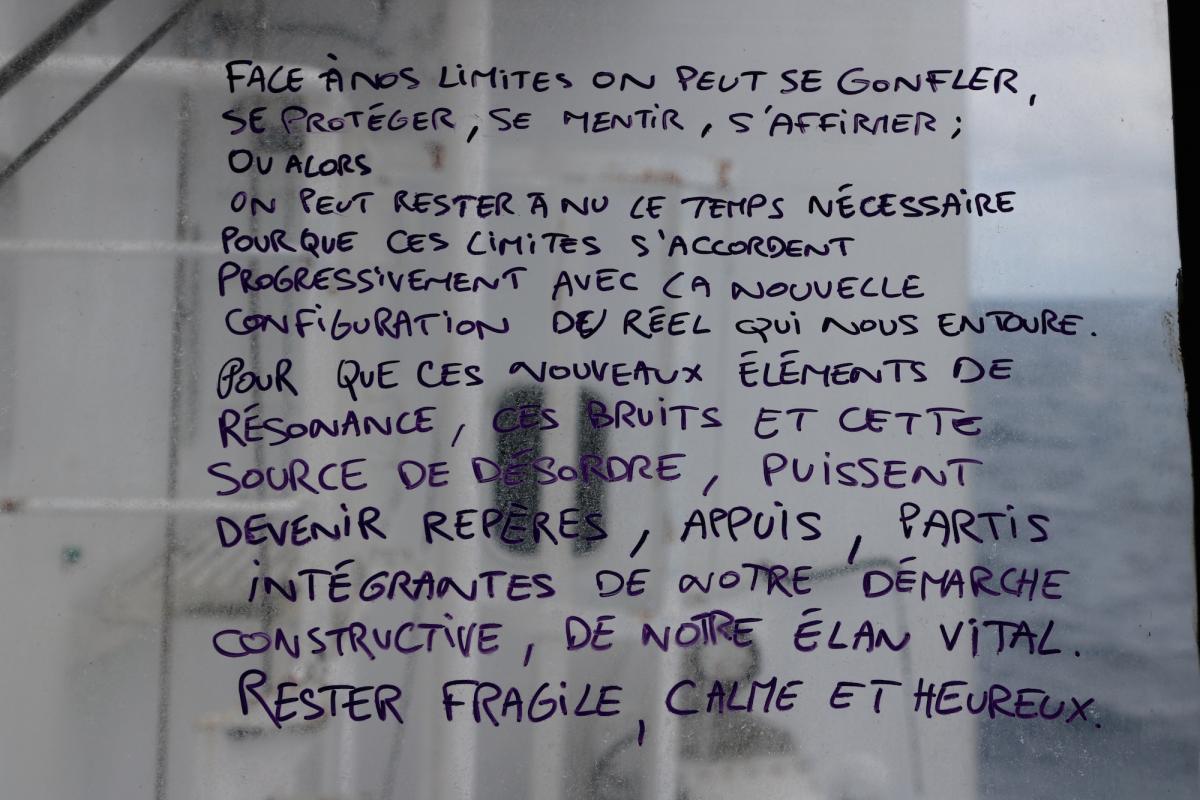 FACE À NOS LIMITES ON PEUT SE GONFLER,
SE PROTÉGER, SE MENTIR, S'AFFIRMER ;
OU ALORS
ON PEUT RESTER À NU LE TEMPS NÉCESSAIRE
POUR QUE CES LIMITES S'ACCORDENT
PROGRESSIVEMENT AVEC LA NOUVELLE
CONFIGURATION DE RÉEL QUI NOUS ENTOURE.
POUR QUE CES NOUVEAUX ÉLÉMENTS DE
RÉSONANCE, CES BRUITS ET CETTE
SOURCE DE DÉSORDRE, PUISSENT
DEVENIR REPÈRES, APPUIS, PARTIS
INTÉGRANTES DE NOTRE DÉMARCHE
CONSTRUCTIVE, DE NOTRE ÉLAN VITAL.
RESTER FRAGILE, CALME ET HEUREUX.